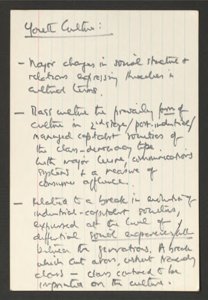 Youth Culture:
- Major changes in social structure &
relations expressing themselves in
cultural terms.
- Mass culture the prevailing form of
culture in 2nd stage/post-industrial/
managed capitalist societies of
the class-democracy type
with major leisure, communications
systems & a measure of
consumer affluence.
- Related to a break in
industrial-capitalist societies,
expressed at the level of
differential social experience
between the generations. A break
which cut across, without
class - class continued to be
imprinted on the culture.